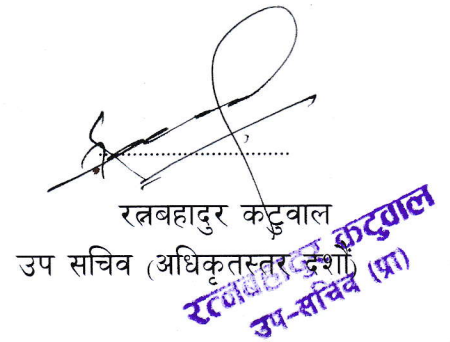 रत्नबहादुर कटुवाल
उप सचिव (अधिकृतस्तर दशौं)
रत्नबहादुर कटुवाल
उप-सचिव (प्रा)